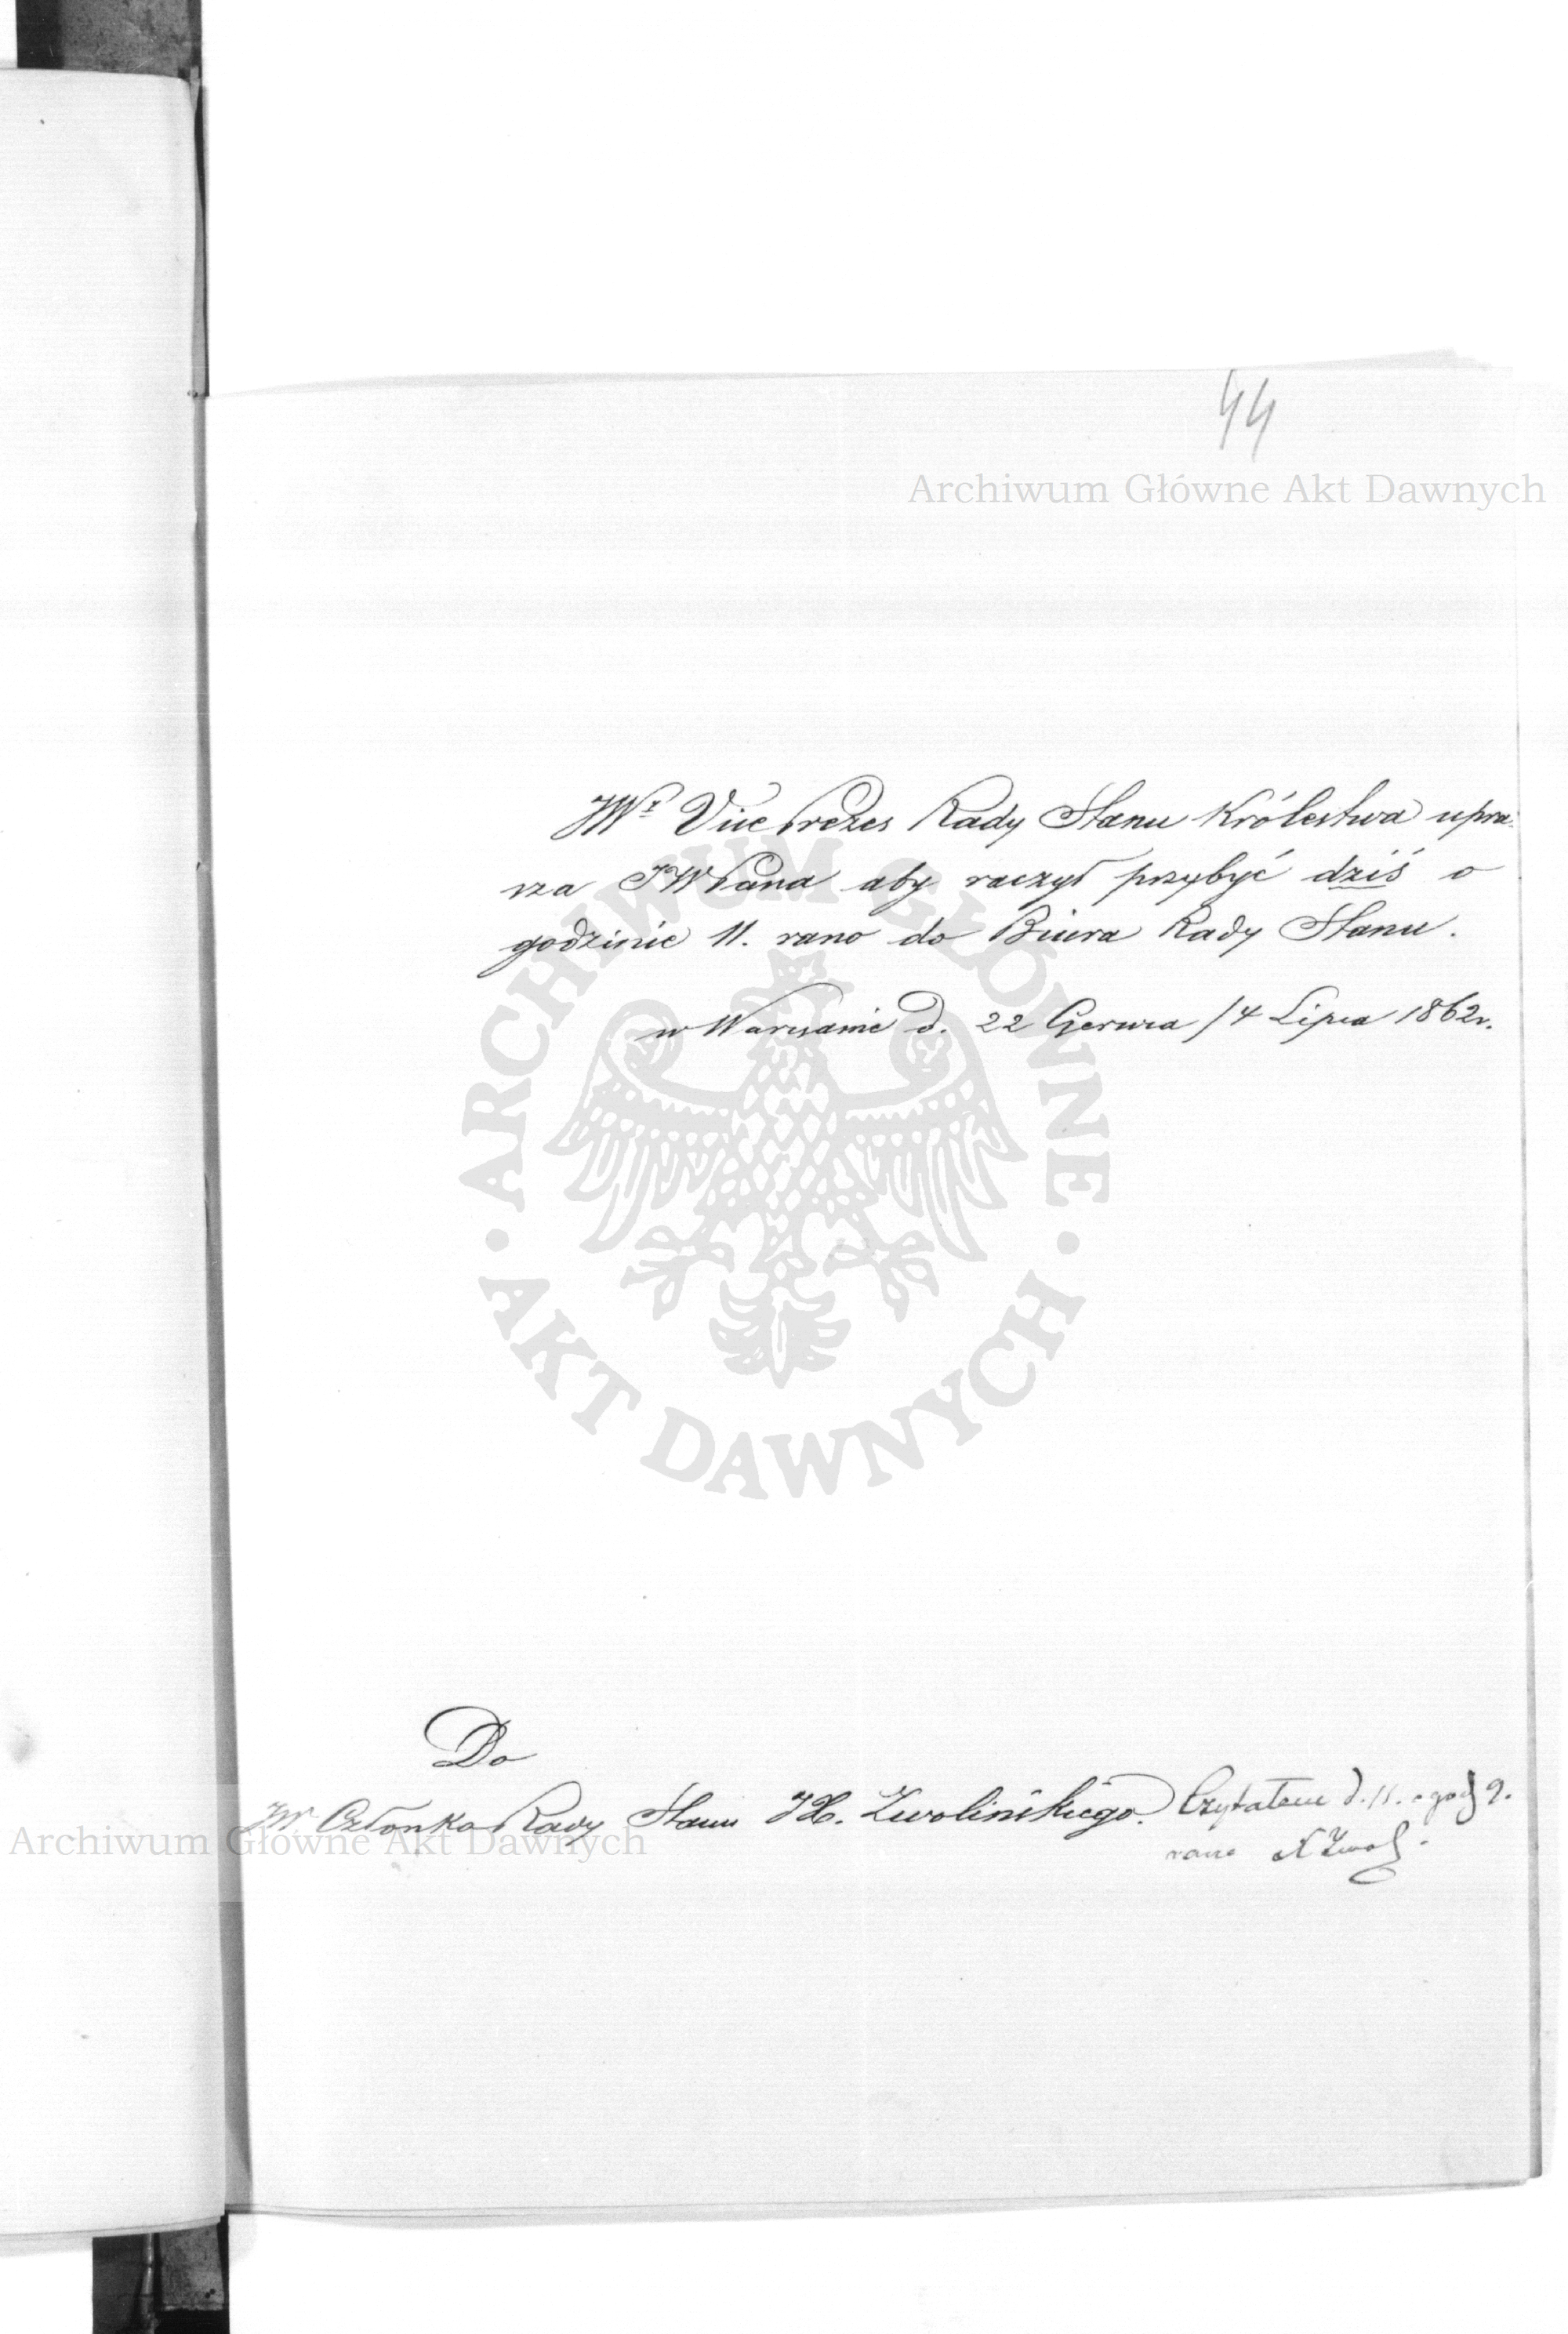 44
Archiwum Główne Akt Dawnych
JWy Vice Prezes Rady Stanu Królestwa upra-
sza JWPana aby raczył przybyć dziś o
godzinie 11. rano do Biura Rady Stanu.
w Warszawie d. 22 Czerwca / 4 Lipca 1862r.
ARCHIWUM GŁÓWNE
AKT DAWNYCH
Do
JW. Członka Rady Stanu JX. Zwolińskiego. Czytałem d. 11. o god 9.
rano
Archiwum Główne Akt Dawnych